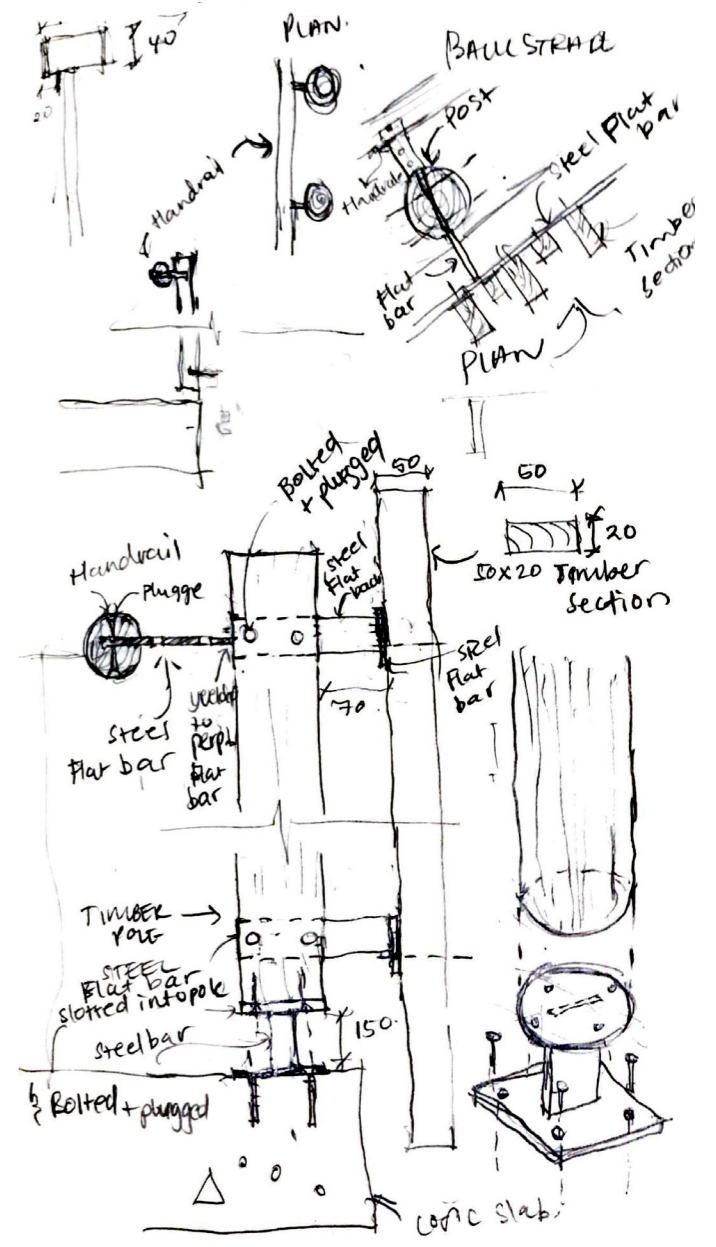 40
20
PLAN.
BALUSTRADE
Post
Steel Flat
bar
Handrail
Flat
bar
Timber
section
PLAN
Handrail
Bolted
+ plugged
50
60
20
50x20 Timber
Section
Handrail
Plugge
steel
Flat
steel
Flat
bar
70
Steel
Flat bar
to
perp
Flat
bar
TIMBER
POLE
STEEL
Flat bar
slotted into pole
steel bar
150.
Bolted + plugged
conc slab.